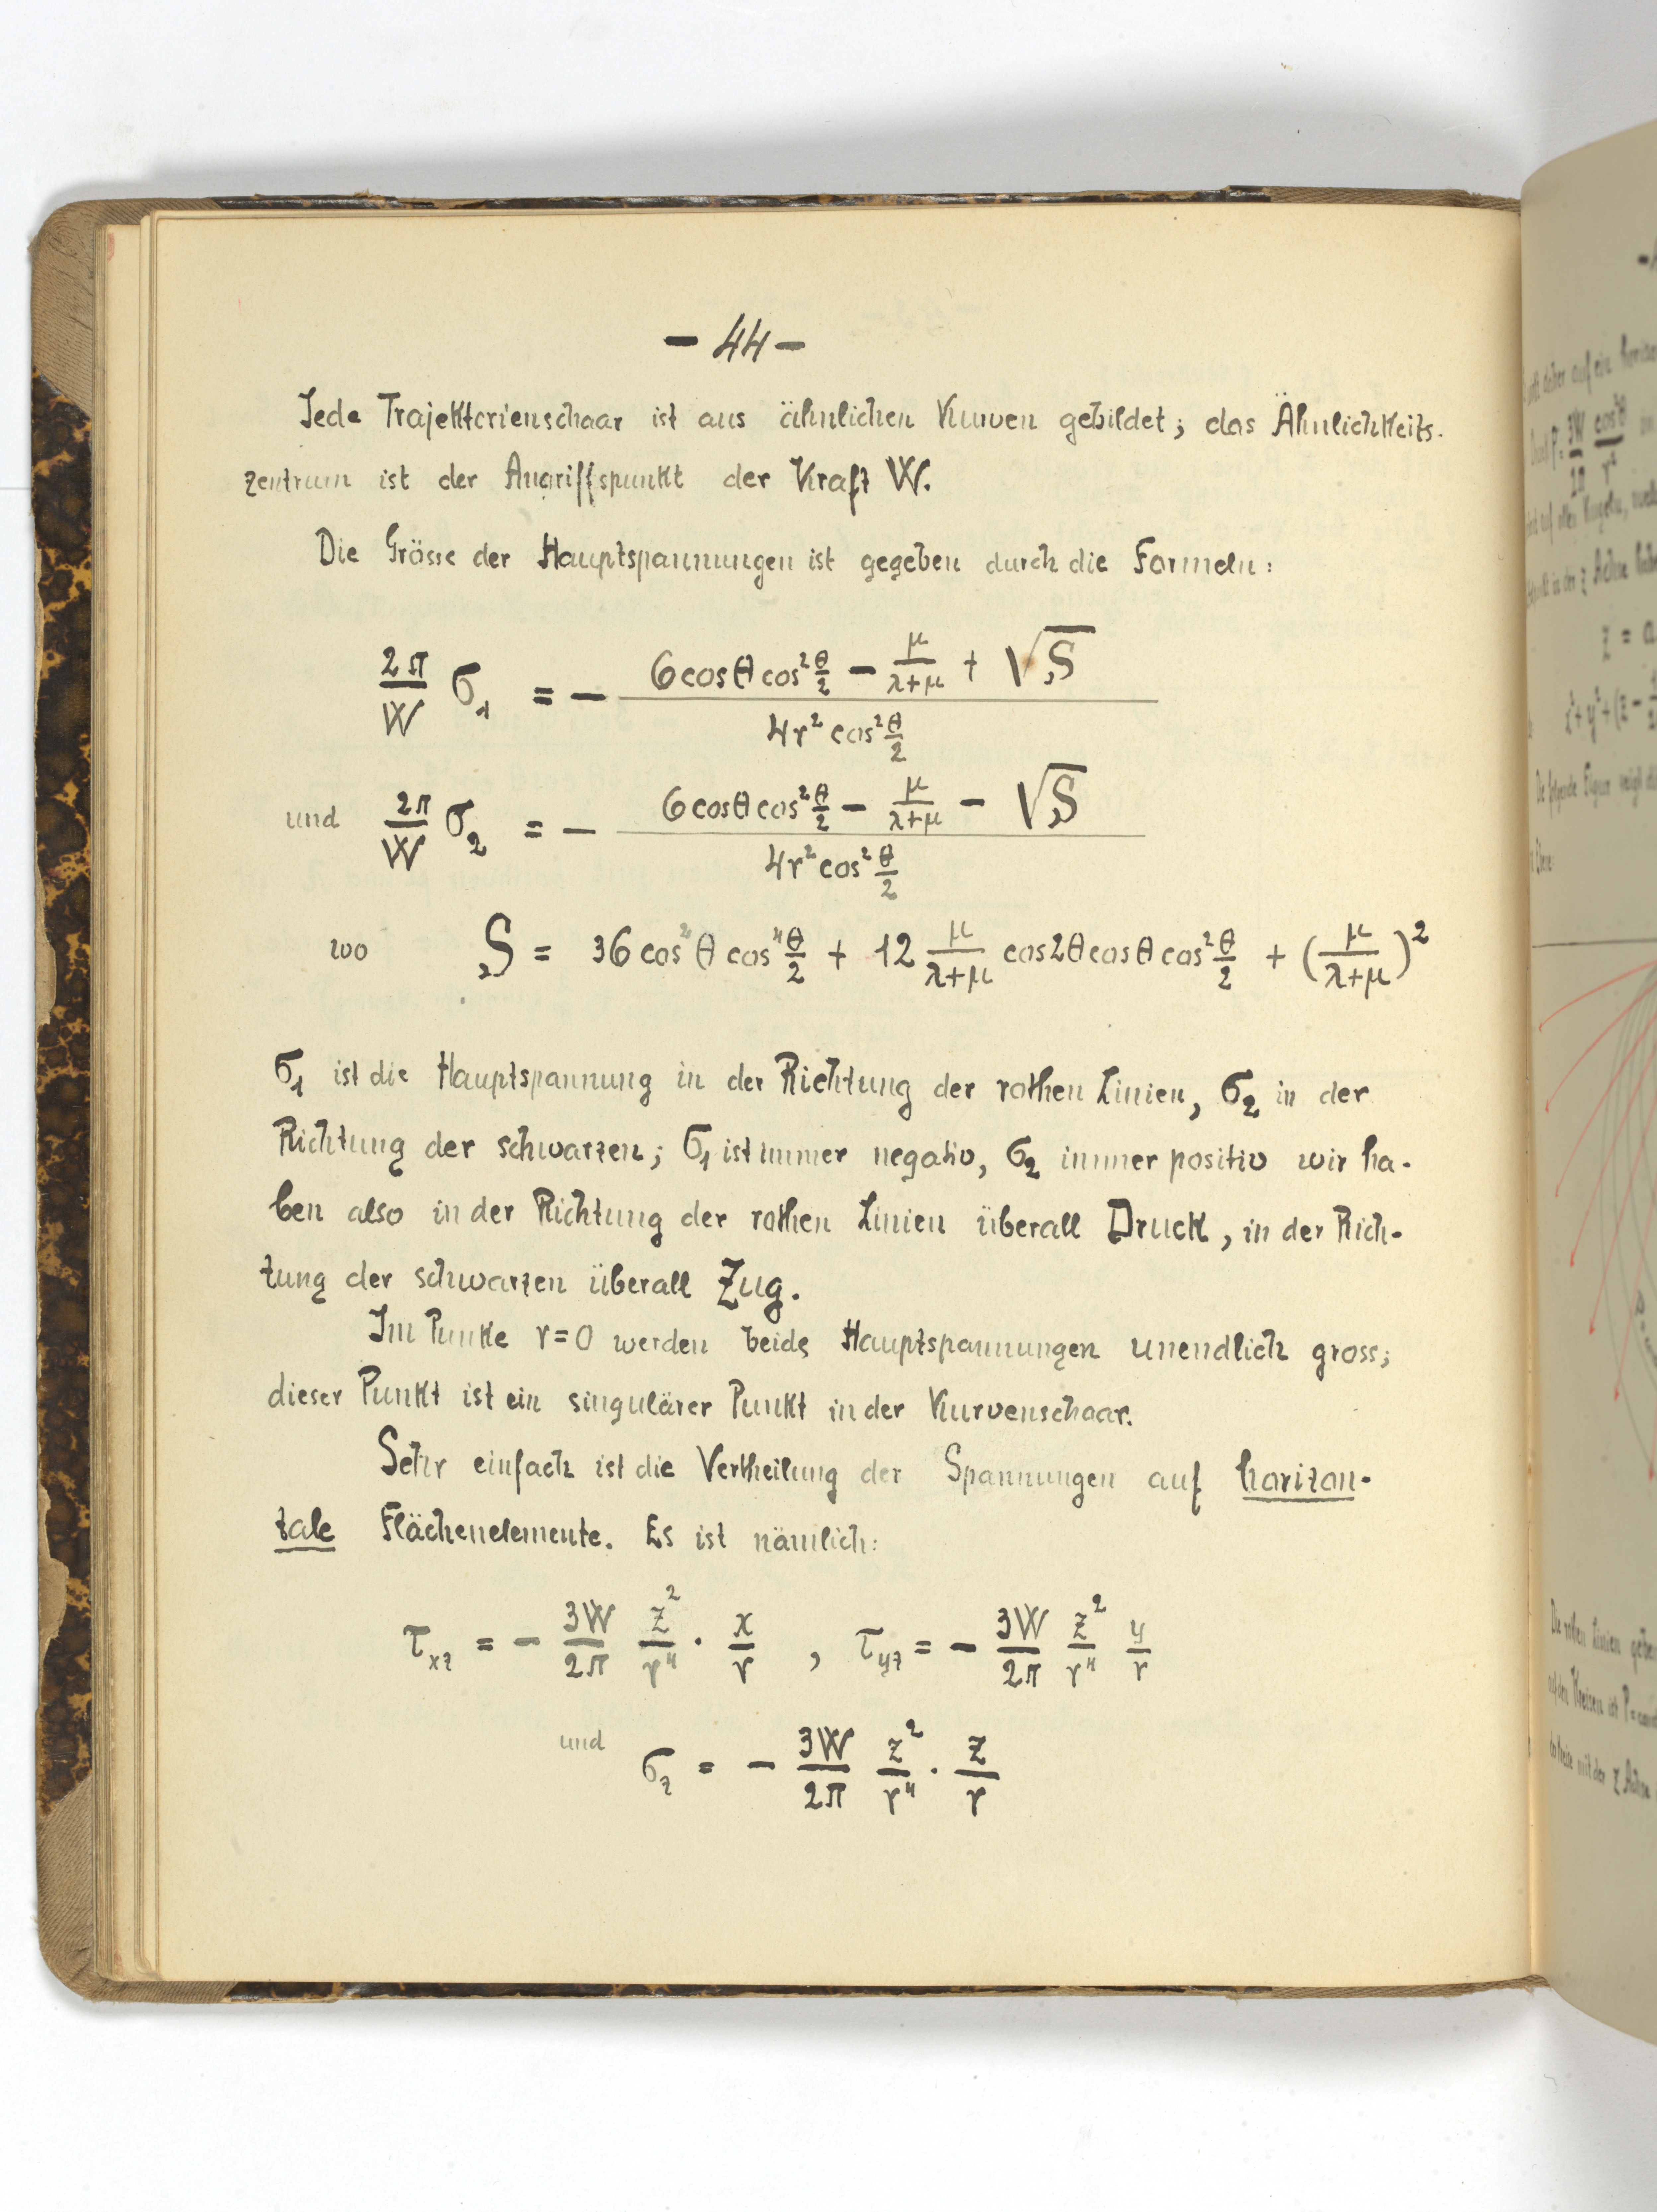 - 44 -
Jede Trajektorienschaar ist aus ähnlichen Kurven gebildet; das Ähnlichkeits-
zentrum ist der Angriffspunkt der Kraft W.
Die Grösse der Hauptspannungen ist gegeben durch die Formeln:
2π/W σ₁ = - (6 cos θ cos² θ/2 - μ/(λ+μ) + √S) / (4r² cos² θ/2)
und 2π/W σ₂ = - (6 cos θ cos² θ/2 - μ/(λ+μ) - √S) / (4r² cos² θ/2)
wo S = 36 cos² θ cos⁴ θ/2 + 12 μ/(λ+μ) cos 2θ cos θ cos² θ/2 + (μ/(λ+μ))²
σ₁ ist die Hauptspannung in der Richtung der rothen Linien, σ₂ in der
Richtung der schwarzen; σ₁ ist immer negativ, σ₂ immer positiv wir ha-
ben also in der Richtung der rothen Linien überall Druck, in der Rich-
tung der schwarzen überall Zug.
Im Punkte r=0 werden beide Hauptspannungen unendlich gross;
dieser Punkt ist ein singulärer Punkt in der Kurvenschaar.
Sehr einfach ist die Vertheilung der Spannungen auf horizon-
tale Flächenelemente. Es ist nämlich:
τxz = - 3W/2π z²/r⁴ · x/r , τyz = - 3W/2π z²/r⁴ y/r
und σz = - 3W/2π z²/r⁴ · z/r